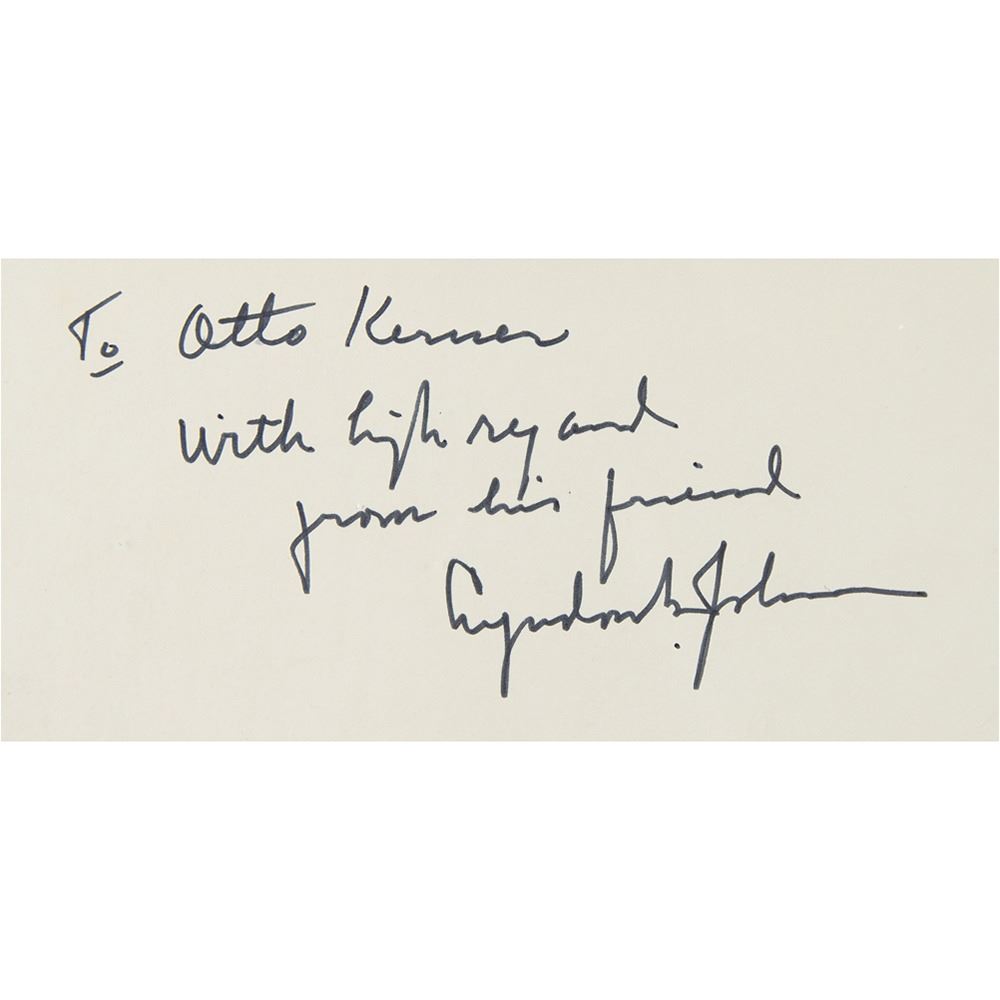 To Otto Kerner
with high regard
from his friend
Lyndon B. Johnson